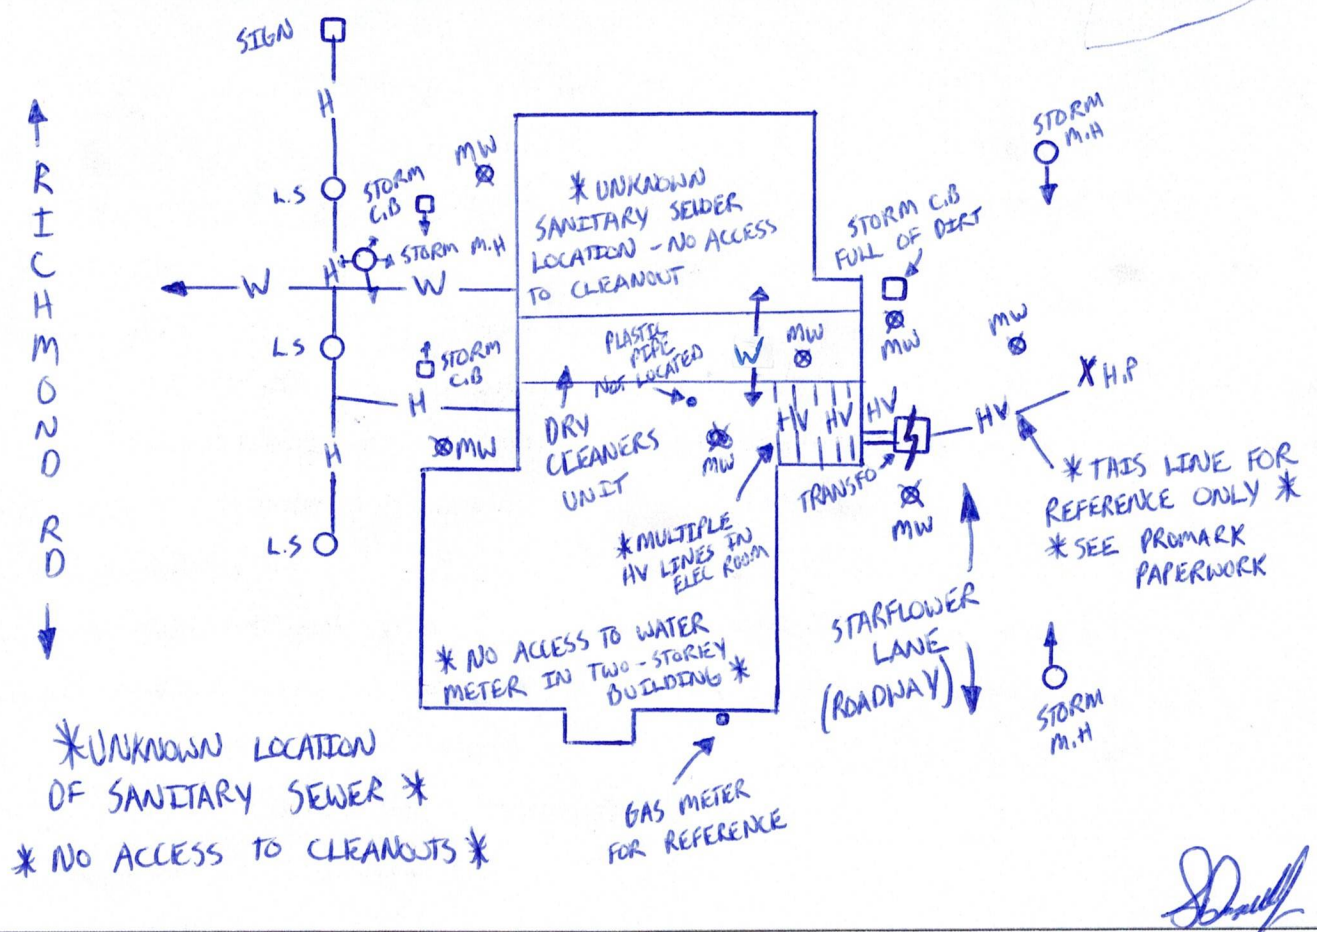 SIGN
H
L.S
STORM
C.B
MW
H
STORM M.H
W
W
L.S
STORM
C.B
H
MW
H
L.S
RICHMOND RD
* UNKNOWN
SANITARY SEWER
LOCATION - NO ACCESS
TO CLEANOUT
PLASTIC
PIPE
NOT LOCATED
W
MW
DRY
CLEANERS
UNIT
MW
HV
HV
HV
* MULTIPLE
HV LINES IN
ELEC ROOM
* NO ACCESS TO WATER
METER IN TWO-STOREY
BUILDING *
STORM
M.H
STORM C.B
FULL OF DIRT
MW
MW
X H.P
HV
TRANSFO
MW
* THIS LINE FOR
REFERENCE ONLY *
* SEE PROMARK
PAPERWORK
STARFLOWER
LANE
(ROADWAY)
STORM
M.H
GAS METER
FOR REFERENCE
* UNKNOWN LOCATION
OF SANITARY SEWER *
* NO ACCESS TO CLEANOUTS *